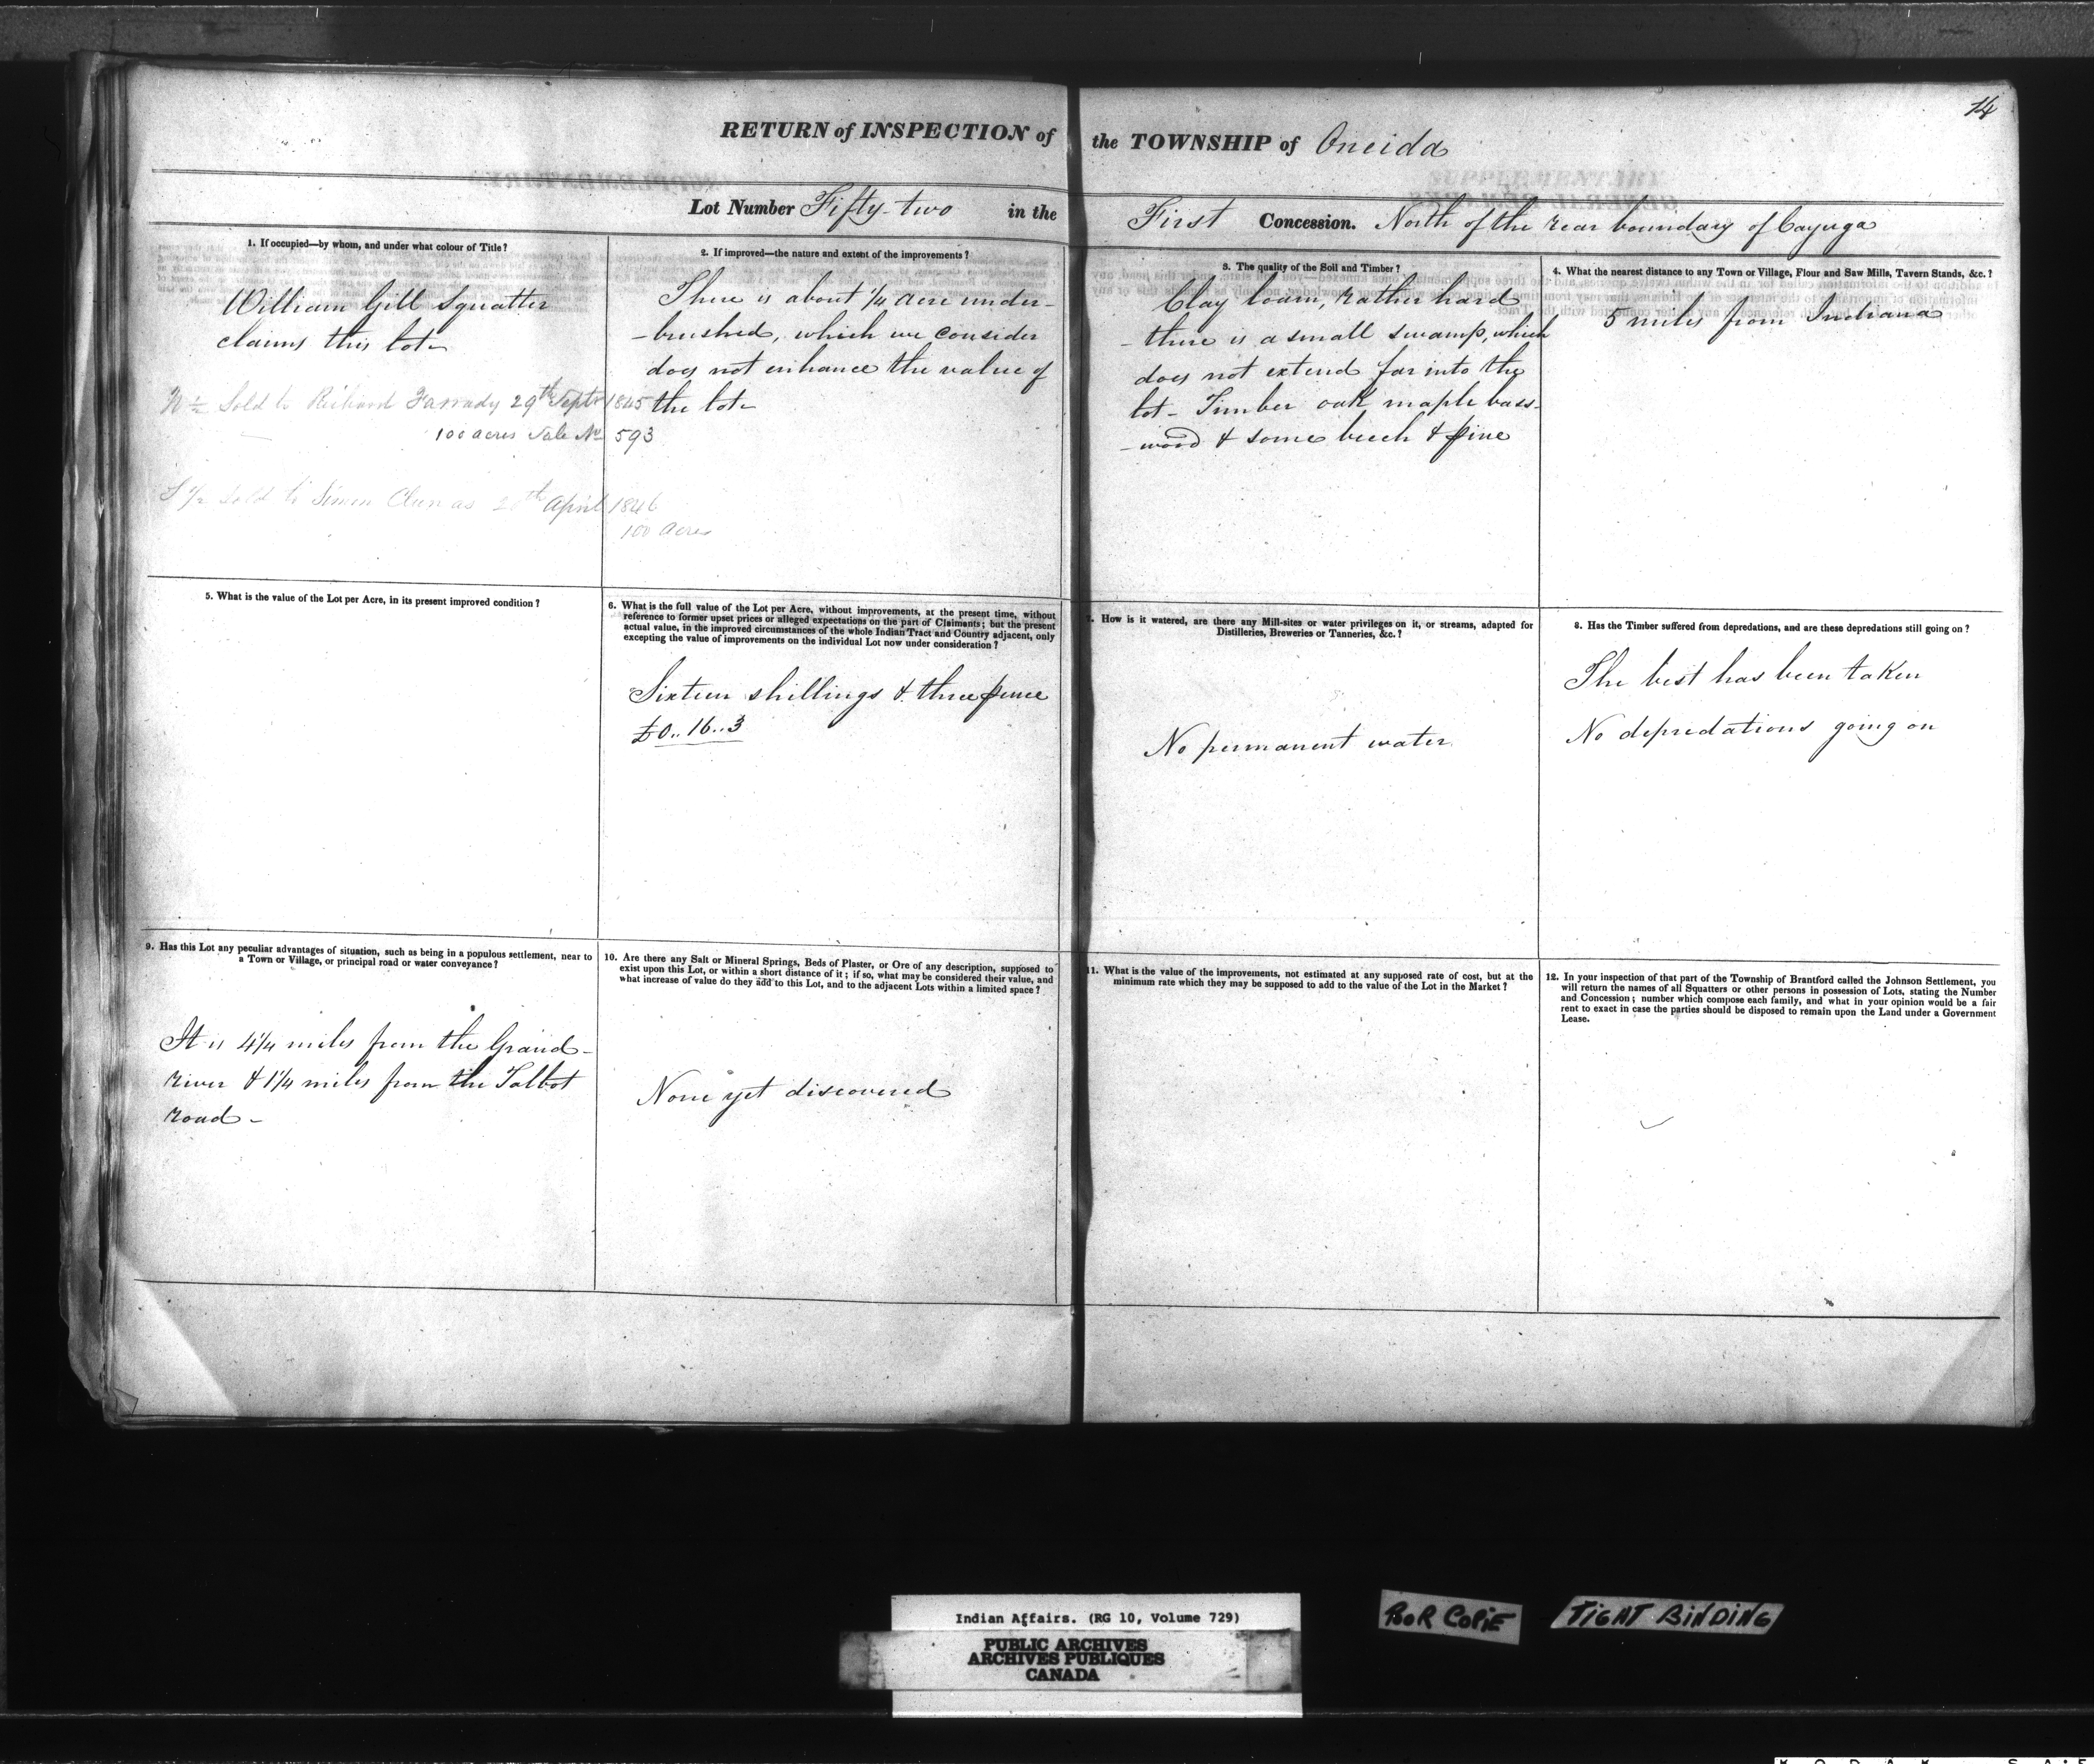 14
RETURN of INSPECTION of the TOWNSHIP of Oneida
Lot Number Fifty-two in the First Concession. North of the rear boundary of Cayuga
1. If occupied—by whom, and under what colour of Title?
William Gill Squatter
claims this lot-
N ½ Sold to Richard Farrady 29th Septr 1845
100 acres Sale No 593
S ½ Sold to Simon April 1846
100 acres
2. If improved—the nature and extent of the improvements?
There is about ¼ acre under-
-brushed, which we consider
does not enhance the value of
the lot-
3. The quality of the Soil and Timber?
Clay loam, rather hard
- there is a small swamp, which
does not extend far into the
lot- Timber oak maple bass-
-wood & some beech & pine
4. What the nearest distance to any Town or Village, Flour and Saw Mills, Tavern Stands, &c.?
5 miles from Indiana
5. What is the value of the Lot per Acre, in its present improved condition?
6. What is the full value of the Lot per Acre, without improvements, at the present time, without
reference to former upset prices or alleged expectations on the part of Claimants; but the present
actual value, in the improved circumstances of the whole Indian Tract and Country adjacent, only
excepting the value of improvements on the individual Lot now under consideration?
Sixteen shillings & three pence
£0.. 16..3
7. How is it watered, are there any Mill-sites or water privileges on it, or streams, adapted for
Distilleries, Breweries or Tanneries, &c.?
No permanent water
8. Has the Timber suffered from depredations, and are these depredations still going on?
The best has been taken
No depredations going on
9. Has this Lot any peculiar advantages of situation, such as being in a populous settlement, near to
a Town or Village, or principal road or water conveyance?
It is 4¼ miles from the Grand-
river & 1¼ miles from the Talbot
road-
10. Are there any Salt or Mineral Springs, Beds of Plaster, or Ore of any description, supposed to
exist upon this Lot, or within a short distance of it; if so, what may be considered their value, and
what increase of value do they add to this Lot, and to the adjacent Lots within a limited space?
None yet discovered
11. What is the value of the improvements, not estimated at any supposed rate of cost, but at the
minimum rate which they may be supposed to add to the value of the Lot in the Market?
12. In your inspection of that part of the Township of Brantford called the Johnson Settlement, you
will return the names of all Squatters or other persons in possession of Lots, stating the Number
and Concession; number which compose each family, and what in your opinion would be a fair
rent to exact in case the parties should be disposed to remain upon the Land under a Government
Lease.
Indian Affairs. (RG 10, Volume 729)
PUBLIC ARCHIVES
ARCHIVES PUBLIQUES
CANADA
POOR COPIE
TIGHT BINDING